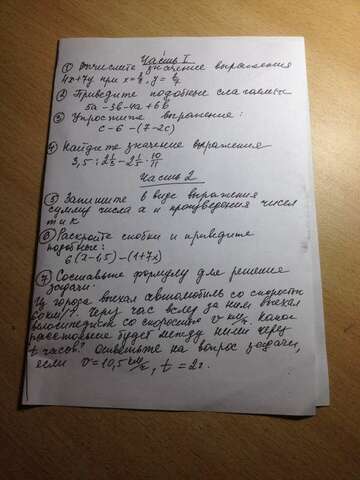 Часть I
① Вычислите значение выражения
4x+7y при x=
② Приведите подобные слагаемые
5a-3b-4a+6b
③ Упростите выражение:
c-6-(7-2c)
④ Найдите значение выражения
3,5 : 2 1/3 - 2 1/5 · 10/11
Часть 2
⑤ Запишите в виде выражения
сумму числа a и произведения чисел
m и k
⑥ Раскройте скобки и приведите
подобные:
6(a-1,5)-(1+7x)
⑦ Составьте формулу для решения
задачи.
Из города выехал автомобиль со скорость
60км/ч. Через час вслед за ним выехал
велосипедист со скоростью v км/ч. какое
расстояние будет между ними через
t часов? ответьте на вопрос задачи,
если v=10,5 км/ч, t=2ч.